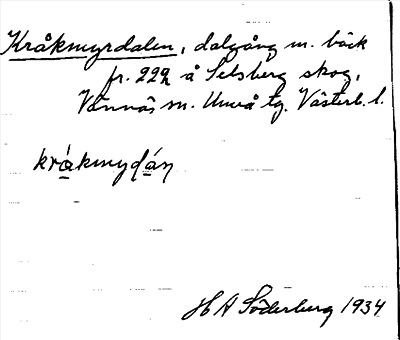 Kråkmyrdalen, dalgång m. bäck
fr. 222 å Selsberg skog,
Vännäs sn. Umeå tg. Västerb. l.
kråkmydán
H A Söderberg 1934